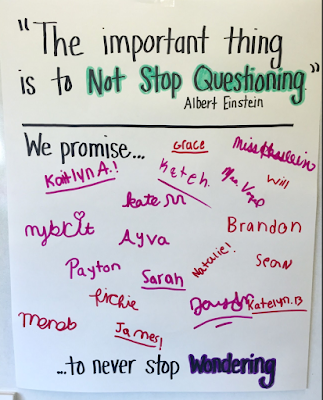 "The important thing
is to Not Stop Questioning"
Albert Einstein
We promise...
Grace
Kaitlyn A.!
Kate h.
Will
Kate m
Ayva
Brandon
Natalie!
Sean
Payton
Sarah
Richie
Katelyn.B
James!
...to never stop Wondering